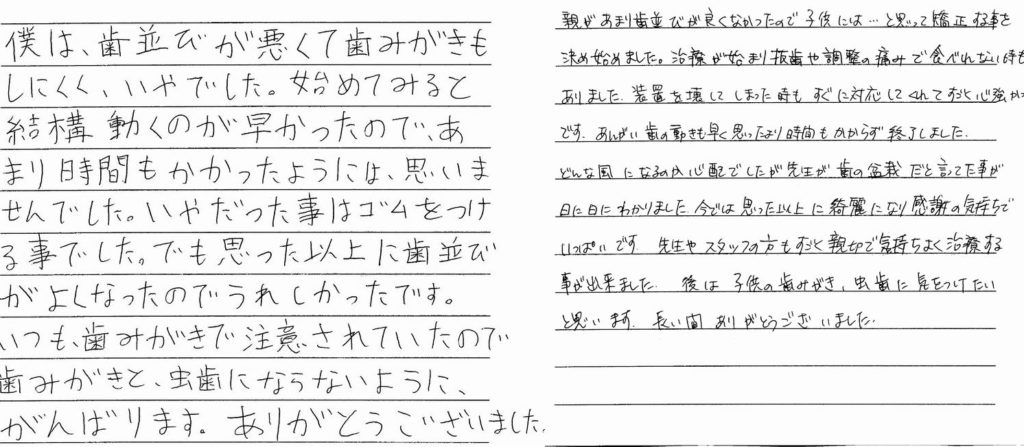 僕は、歯並びが悪くて歯みがきも
しにくく、いやでした。始めてみると
結構動くのが早かったので、あ
まり時間もかかったようには、思いま
せんでした。いやだった事はゴムをつけ
る事でした。でも思った以上に歯並び
がよくなったのでうれしかったです。
いつも、歯みがきで注意されていたので
歯みがきと、虫歯にならないように、
がんばります。ありがとうございました。
親があまり歯並びが良くなかったので子供には…と思って矯正する事を
決め始めました。治療が始まり抜歯や調整の痛みで食べれない時も
ありました。装置を壊してしまった時もすぐに対応してくれてすごく心強かった
です。あんがい歯の動きも早く思ったより時間もかからず終了しました。
どんな風になるのか心配でしたが先生が歯の盆栽だと言ってた事が
日に日にわかりました。今では思った以上に綺麗になり感謝の気持ちで
いっぱいです。先生やスタッフの方もすごく親切で気持ちよく治療する
事が出来ました。後は子供の歯みがき、虫歯に気をつけたい
と思います。長い間ありがとうございました。